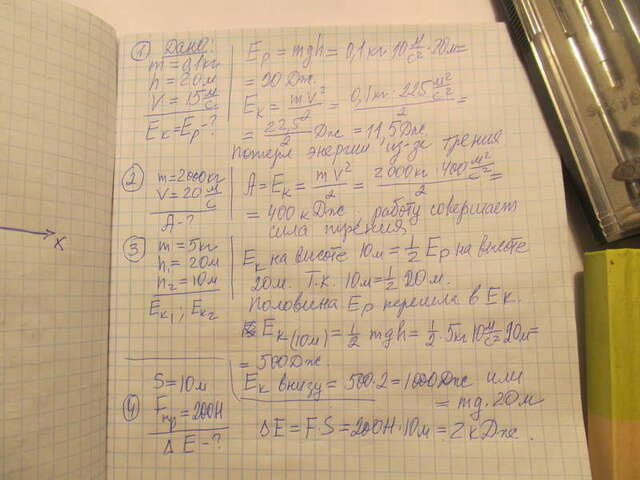 ① Дано:
m = 0,1 кг
h = 20 м
V = 15 м/с
Eк = Eр - ?
Eр = mgh = 0,1 кг · 10 м/с² · 20 м =
= 20 Дж.
Eк = mV²/2 = 0,1 кг · 225 м²/с² / 2 =
= 22,5/2 Дж = 11,5 Дж.
Потеря энергии из-за трения
② m = 2000 кг
V = 20 м/с
A - ?
A = Eк = mV²/2 = 2000 кг · 400 м²/с² / 2 =
= 400 кДж, работу совершает
сила трения
③ m = 5 кг
h₁ = 20 м
h₂ = 10 м
Eк₁; Eк₂
Eк на высоте 10 м = 1/2 Eр на высоте
20 м. Т.к. 10 м = 1/2 20 м.
Половина Eр перешла в Eк.
Eк(10м) = 1/2 mgh = 1/2 · 5 кг 10 м/с² 20 м =
= 500 Дж.
Eк внизу = 500 · 2 = 1000 Дж или
= mg · 20 м
④ S = 10 м
Fтр = 200 Н
ΔE - ?
ΔE = F · S = 200 Н · 10 м = 2 кДж.
x